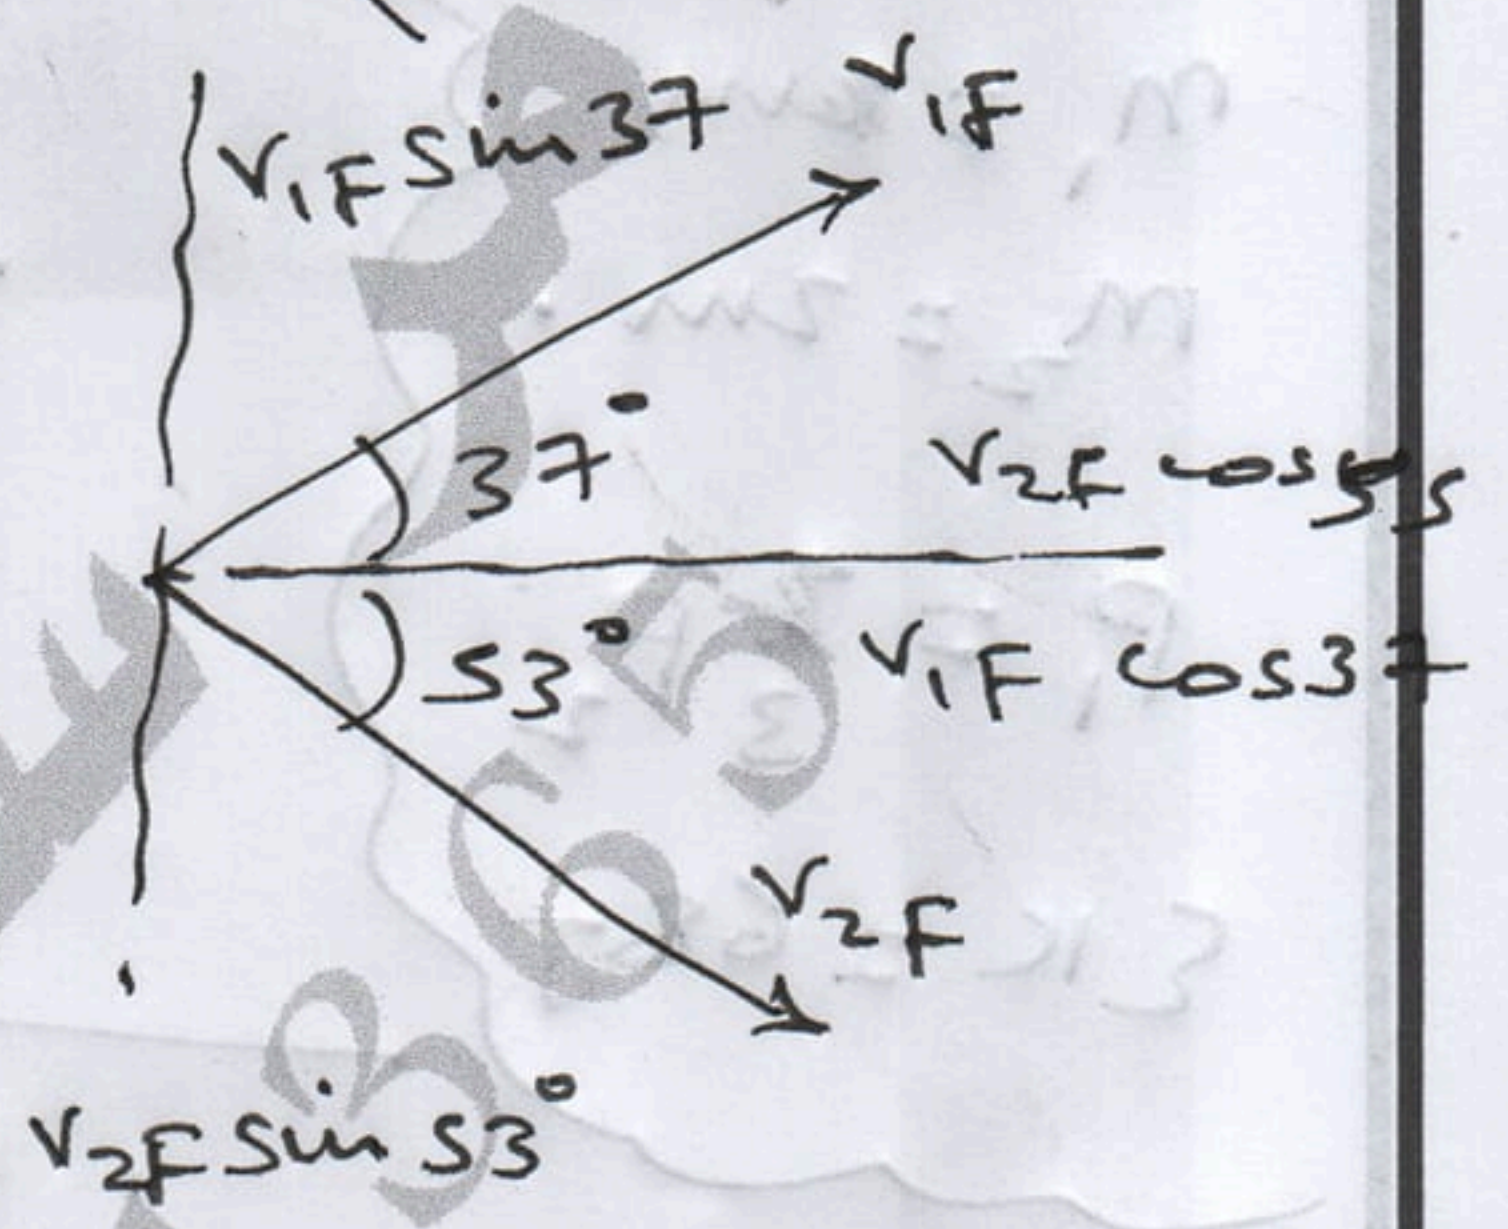 V1F
V1F sin37
37°
V2F cos
53°
V1F cos37
V2F
V2F sin 53°